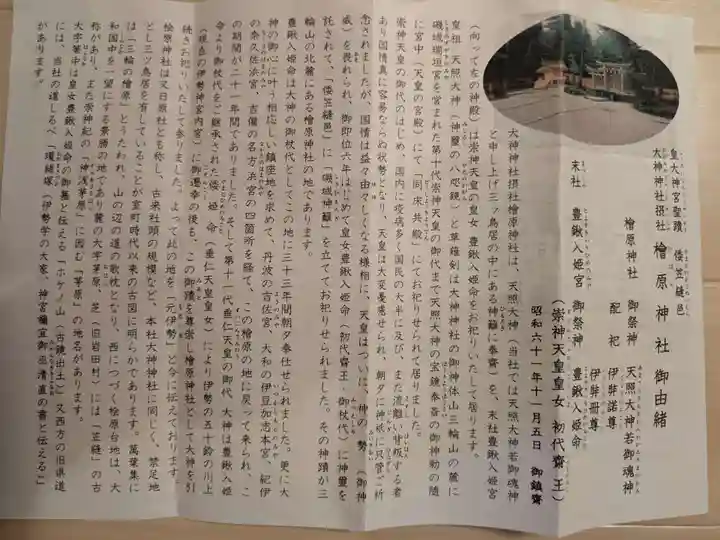 皇大神宮聖蹟　倭笠縫邑
大神神社摂社　檜原神社御由緒
檜原神社　御祭神　天照大神若御魂神
配祀　伊弉諾尊
伊弉冊尊
末社　豊鍬入姫宮　御祭神　豊鍬入姫命
（崇神天皇皇女　初代齋王）
昭和六十一年十一月五日　御鎮齋
（向って左の神殿）
大神神社摂社檜原神社は、天照大神（当社では天照大神若御魂神
と申し上げ三ッ鳥居の中にある神籬に奉齋）を、末社豊鍬入姫宮
は崇神天皇の皇女　豊鍬入姫命をお祀りいたして居ります。
皇祖　天照大神（神璽の八咫鏡）と草薙剣は大神神社の御神体山三輪山の麓に
磯城瑞垣宮を営まれた第十代崇神天皇の御代まで天照大神の宝鏡奉斎の御神勅の随
に宮中（天皇の宮殿）にて「同床共殿」にてお祀りせられて居りました。
崇神天皇の御代のはじめ、国内に疫病多く国民の大半に及び、また流離い背叛する者
あり国情真に容易ならぬ状勢となり、天皇は大変憂慮せられ、朝夕に神祇に只管ご祈
念されましたが、国情は益々由々しくなる様相に、天皇はついに、神の勢（御神
威）を畏れられ、御即位六年はじめて皇女豊鍬入姫命（初代齋王・御杖代）に神璽を
託されて、「倭笠縫邑」に「磯城神籬」を立ててお祀りせられました。その神蹟が三
輪山の北麓にある檜原神社の地であります。
豊鍬入姫命は大神の御杖代としてこの地に三十三年間朝夕奉仕せられました。更に大
神の御心に叶う相応しい鎮座地を求めて、丹波の吉佐宮、大和の伊豆加志本宮、紀伊
の奈久佐浜宮、吉備の名方浜宮の四箇所を経て、この檜原の地に戻って来られ、こ
の期間が二十一年間でありました。そして第十一代垂仁天皇の御代　大神は豊鍬入姫
命より御杖代をご継承された倭姫命（垂仁天皇皇女）により伊勢の五十鈴の川上
（現在の伊勢神宮内宮）に御遷幸の後も、この御蹟を尊崇し檜原神社として大神を引
続きお祀りいたして参りました。よって此の地を「元伊勢」と今に伝えております。
桧原神社は又日原社とも称し、古来社頭の規模など、本社大神神社に同じく、禁足地
とし三ッ鳥居を有していることが室町時代以来の古図に明らかであります。萬葉集に
は「三輪の檜原」とうたわれ、山の辺の道の歌枕となり、西につづく桧原台地は、大
和国中を一望にする景勝の地であり麓の大字茅原、芝（旧岩田村）には「笠縫」の古
称があり、また崇神紀の「神浅茅原」に因む「茅原」の地名があります。
大字箸中は皇女豊鍬入姫命の御墓と伝える「ホケノ山（古鏡出土）」又西方の旧県道
には、当社の道しるべ「環緒塚（伊勢学の大家、神宮禰宜御巫清直の書と伝える）」
があります。